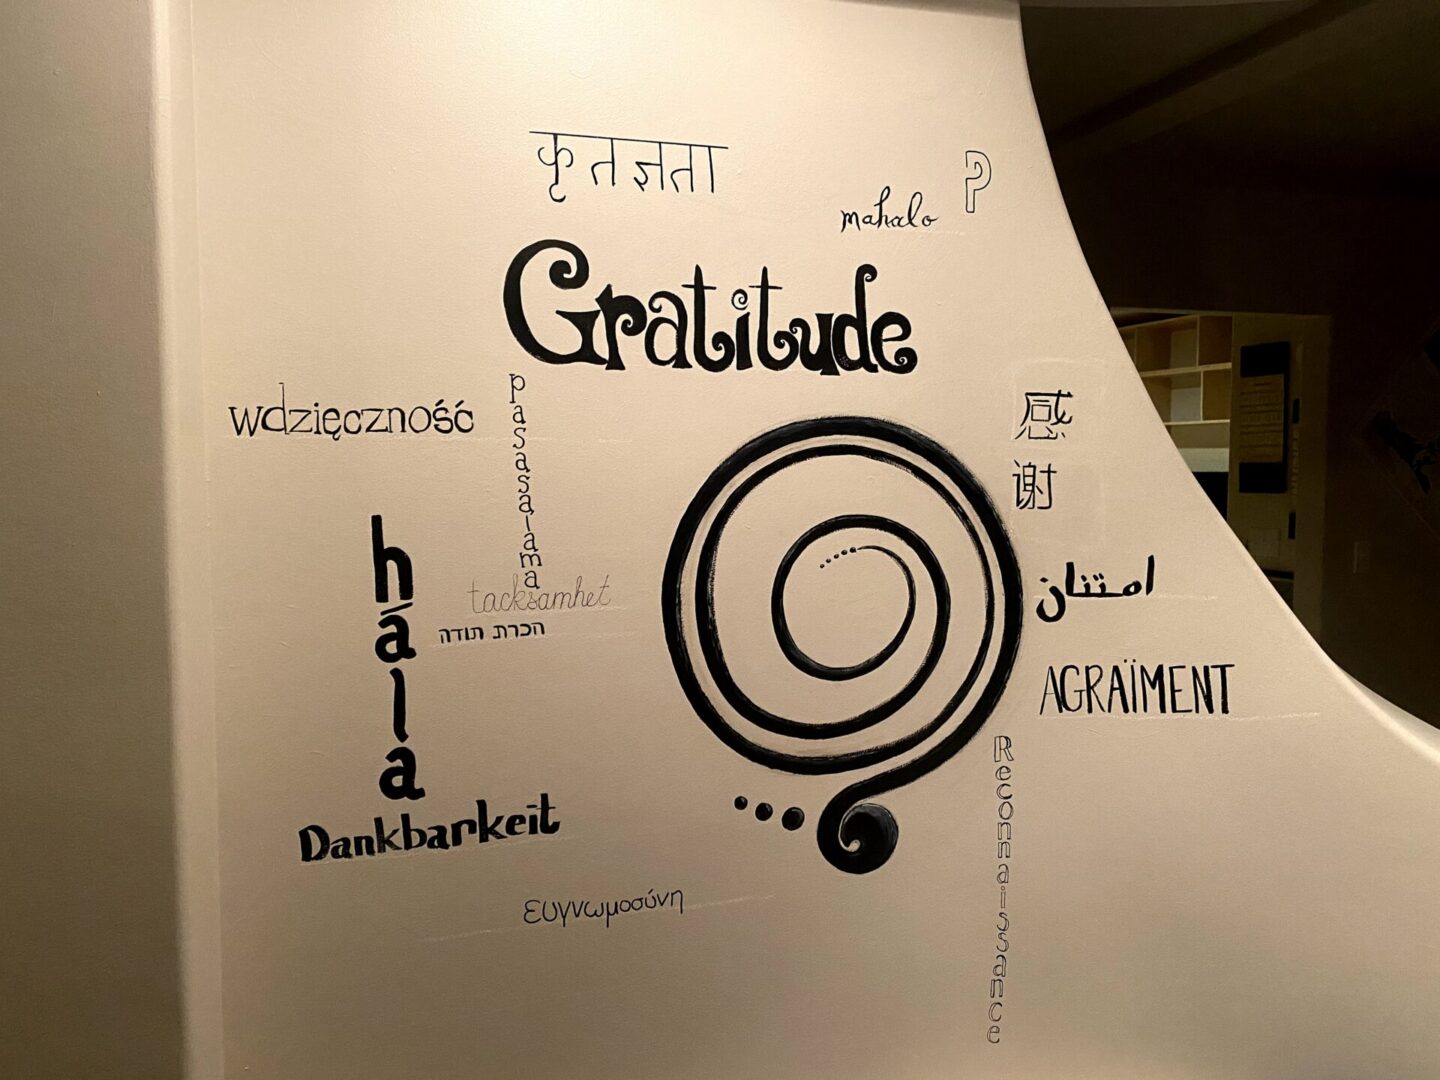 कृतज्ञता
mahalo
P
Gratitude
wdzięczność
pasasalama
感谢
hála
tacksamhet
הכרת תודה
امتنان
AGRAÏMENT
Reconnaissance
Dankbarkeit
ευγνωμοσύνη